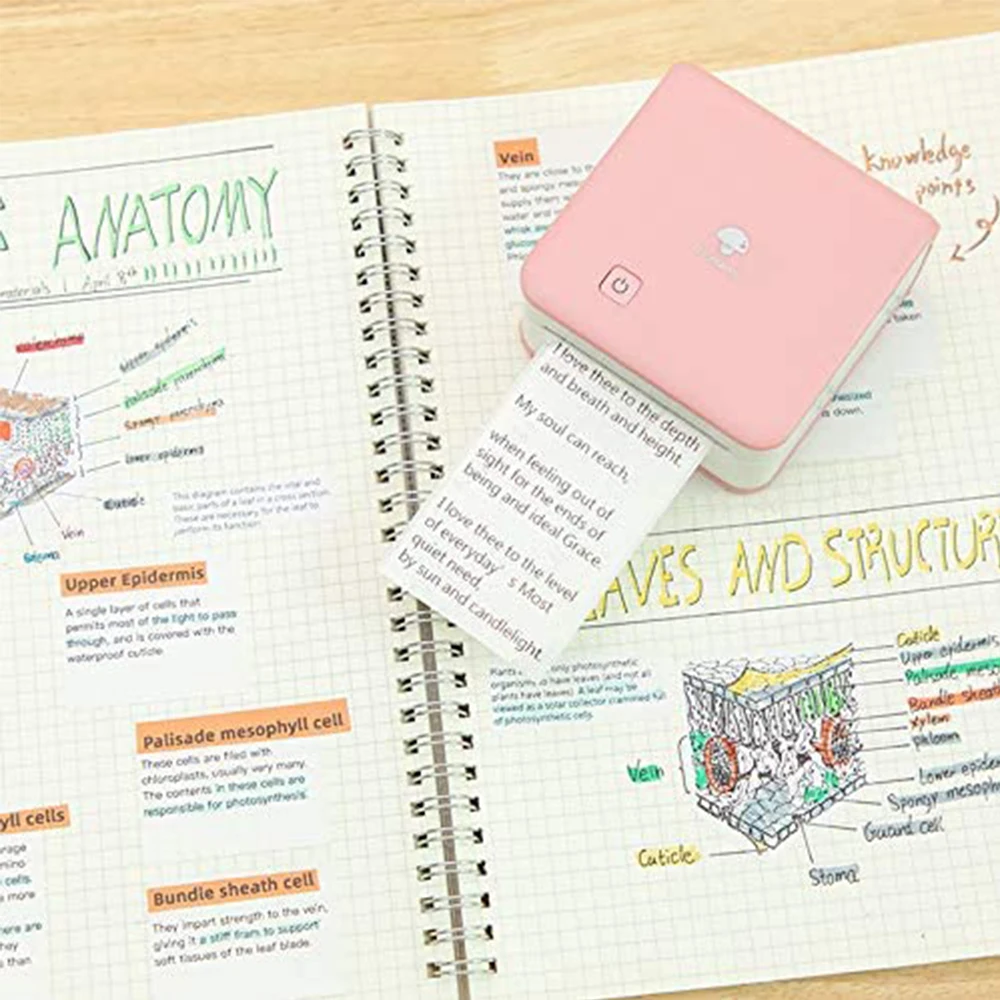 ANATOMY
April 8th
Upper epidermis
Palisade parenchyma
Spongy parenchyma
Lower epidermis
Cuticle
Vein
Stoma
This diagram contains the vital and
basic parts of a leaf in a cross section.
These are necessary for the leaf to
perform its function.
Upper Epidermis
A single layer of cells that
permits most of the light to pass
through, and is covered with the
waterproof cuticle.
Palisade mesophyll cell
These cells are filled with
chloroplasts, usually very many.
The contents in these cells are
responsible for photosynthesis.
yll cells
cells.
more
than
Bundle sheath cell
They impart strength to the vein,
giving it a stiff fram to support
soft tissues of the leaf blade.
Vein
They are close to
and spongy
supply them
water and
knowledge
points
taken
is down.
I love thee to the depth
and breath and height.
My soul can reach,
when feeling out of
sight for the ends of
being and ideal Grace.
I love thee to the level
of everyday’s Most
quiet need,
by sun and candlelight.
AVES AND STRUCTUR
Plants only photosynthetic
organisms to have leaves (and not all
plants have leaves). A leaf may be
viewed as a solar collector crammed full
of photosynthetic cells.
Cuticle
Upper epidermis
Palisade
Bundle sheat
Xylem
phloem
Lower epide
Spongy mesoph
Guard cell
Vein
Cuticle
Stoma